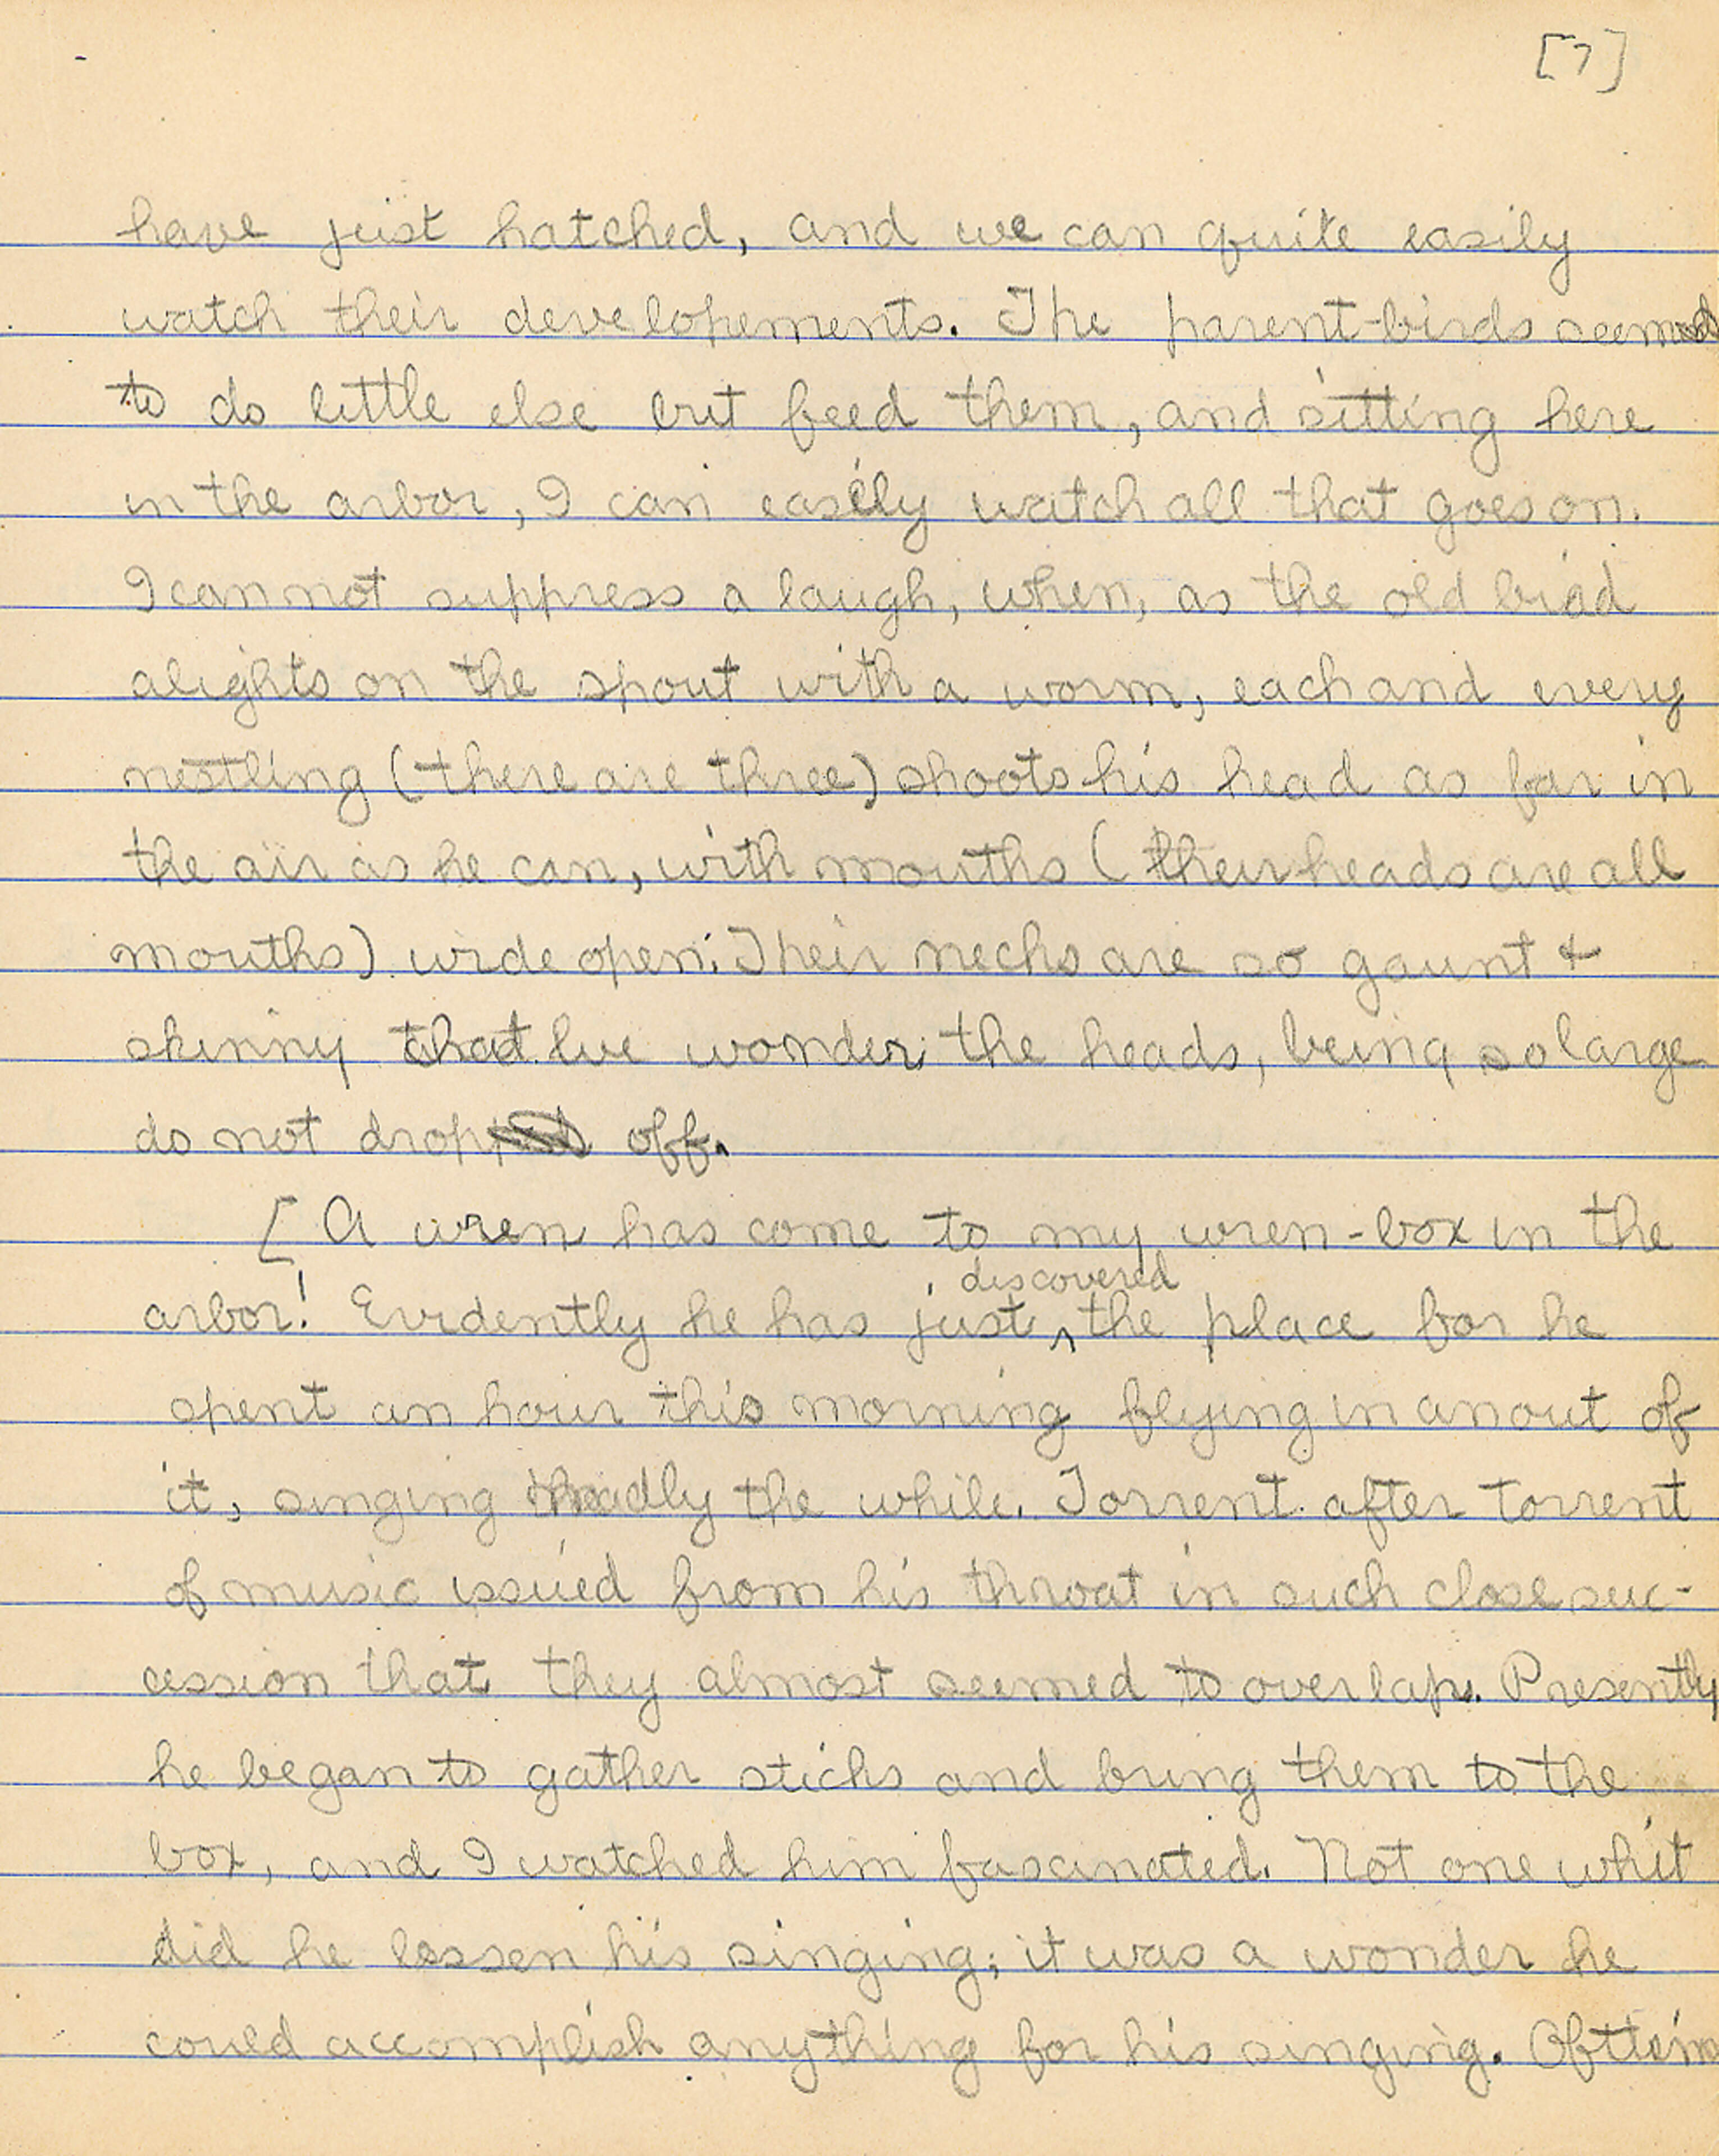 [7]
have just hatched, and we can quite easily
watch their developements. The parent-birds seemed
to do little else but feed them, and sitting here
in the arbor, I can easily watch all that goes on.
I can not suppress a laugh, when, as the old bird
alights on the spout with a worm, each and every
nestling (there are three) shoots his head as far in
the air as he can, with mouths (their heads are all
mouths) wide open. Their necks are so gaunt &
skinny that we wonder the heads, being so large
do not drop off.
[A wren has come to my wren-box in the
arbor! Evidently he has just discovered the place for he
spent an hour this morning flying in an out of
it, singing madly the while. Torrent after torrent
of music issued from his throat in such close suc-
cession that they almost seemed to overlap. Presently
he began to gather sticks and bring them to the
box, and I watched him fascinated. Not one whit
did he lessen his singing; it was a wonder he
could accomplish anything for his singing.